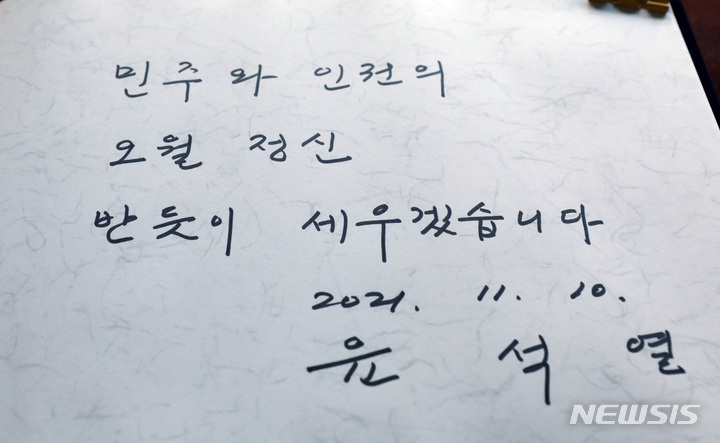 민주와 인권의
오월 정신
반듯이 세우겠습니다
2021. 11. 10.
윤 석 열
NEWSIS